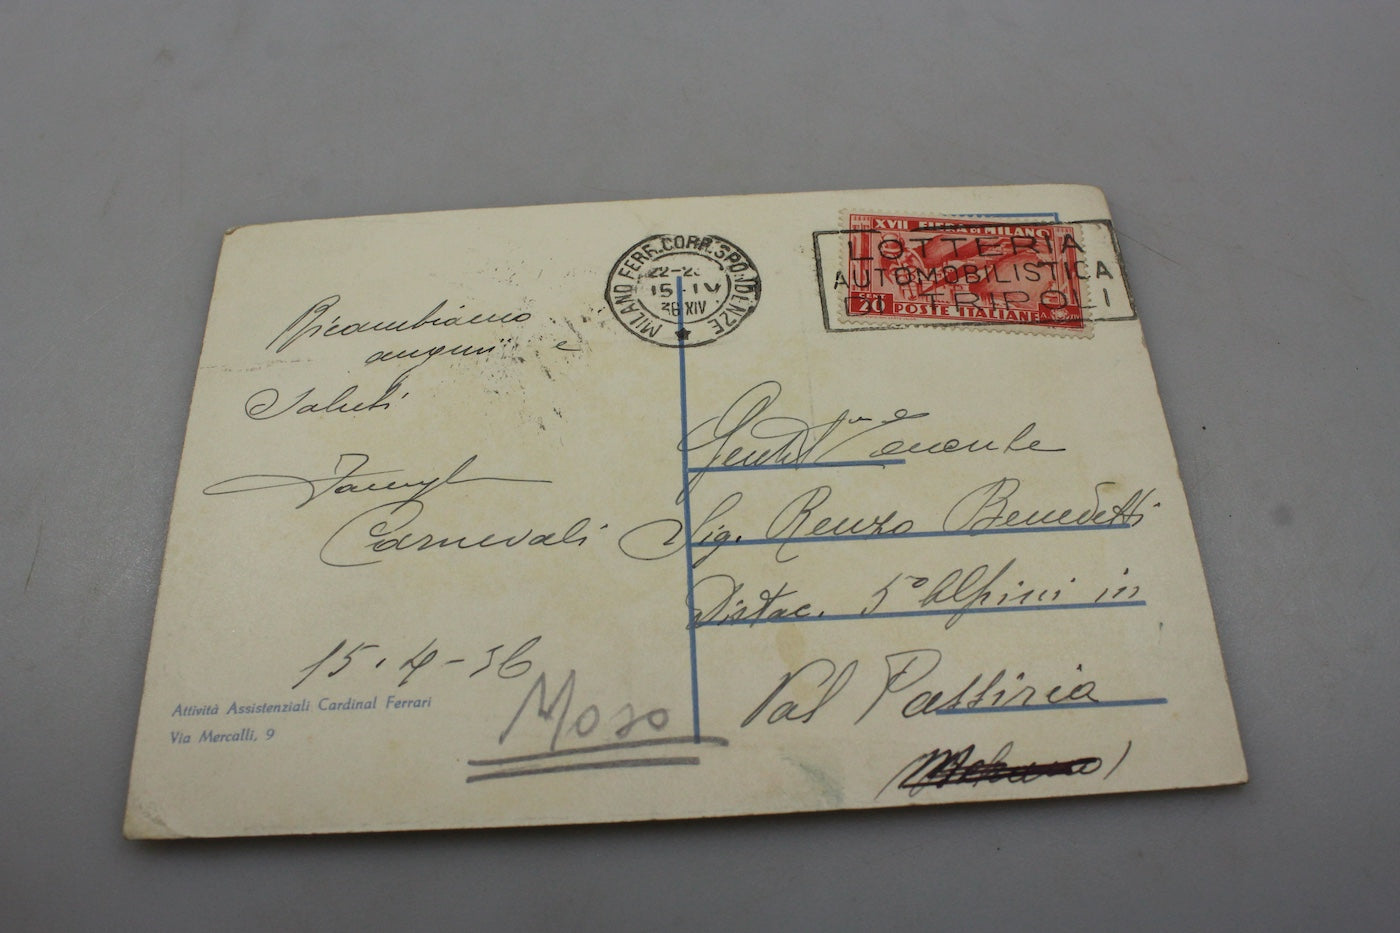 MILANO FERR. CORRISPONDENZE
15 · IV
36 XIV
LOTTERIA
AUTOMOBILISTICA
TRIPOLI
XVII FIERA DI MILANO
20 POSTE ITALIANE
Ricambiamo
auguri e
Saluti
Carnevali
15 · 4 - 36
Attività Assistenziali Cardinal Ferrari
Via Mercalli, 9
Moso
Tenente
Sig. Renzo Benedetti
Distac. 5° Alpini in
Val Passiria